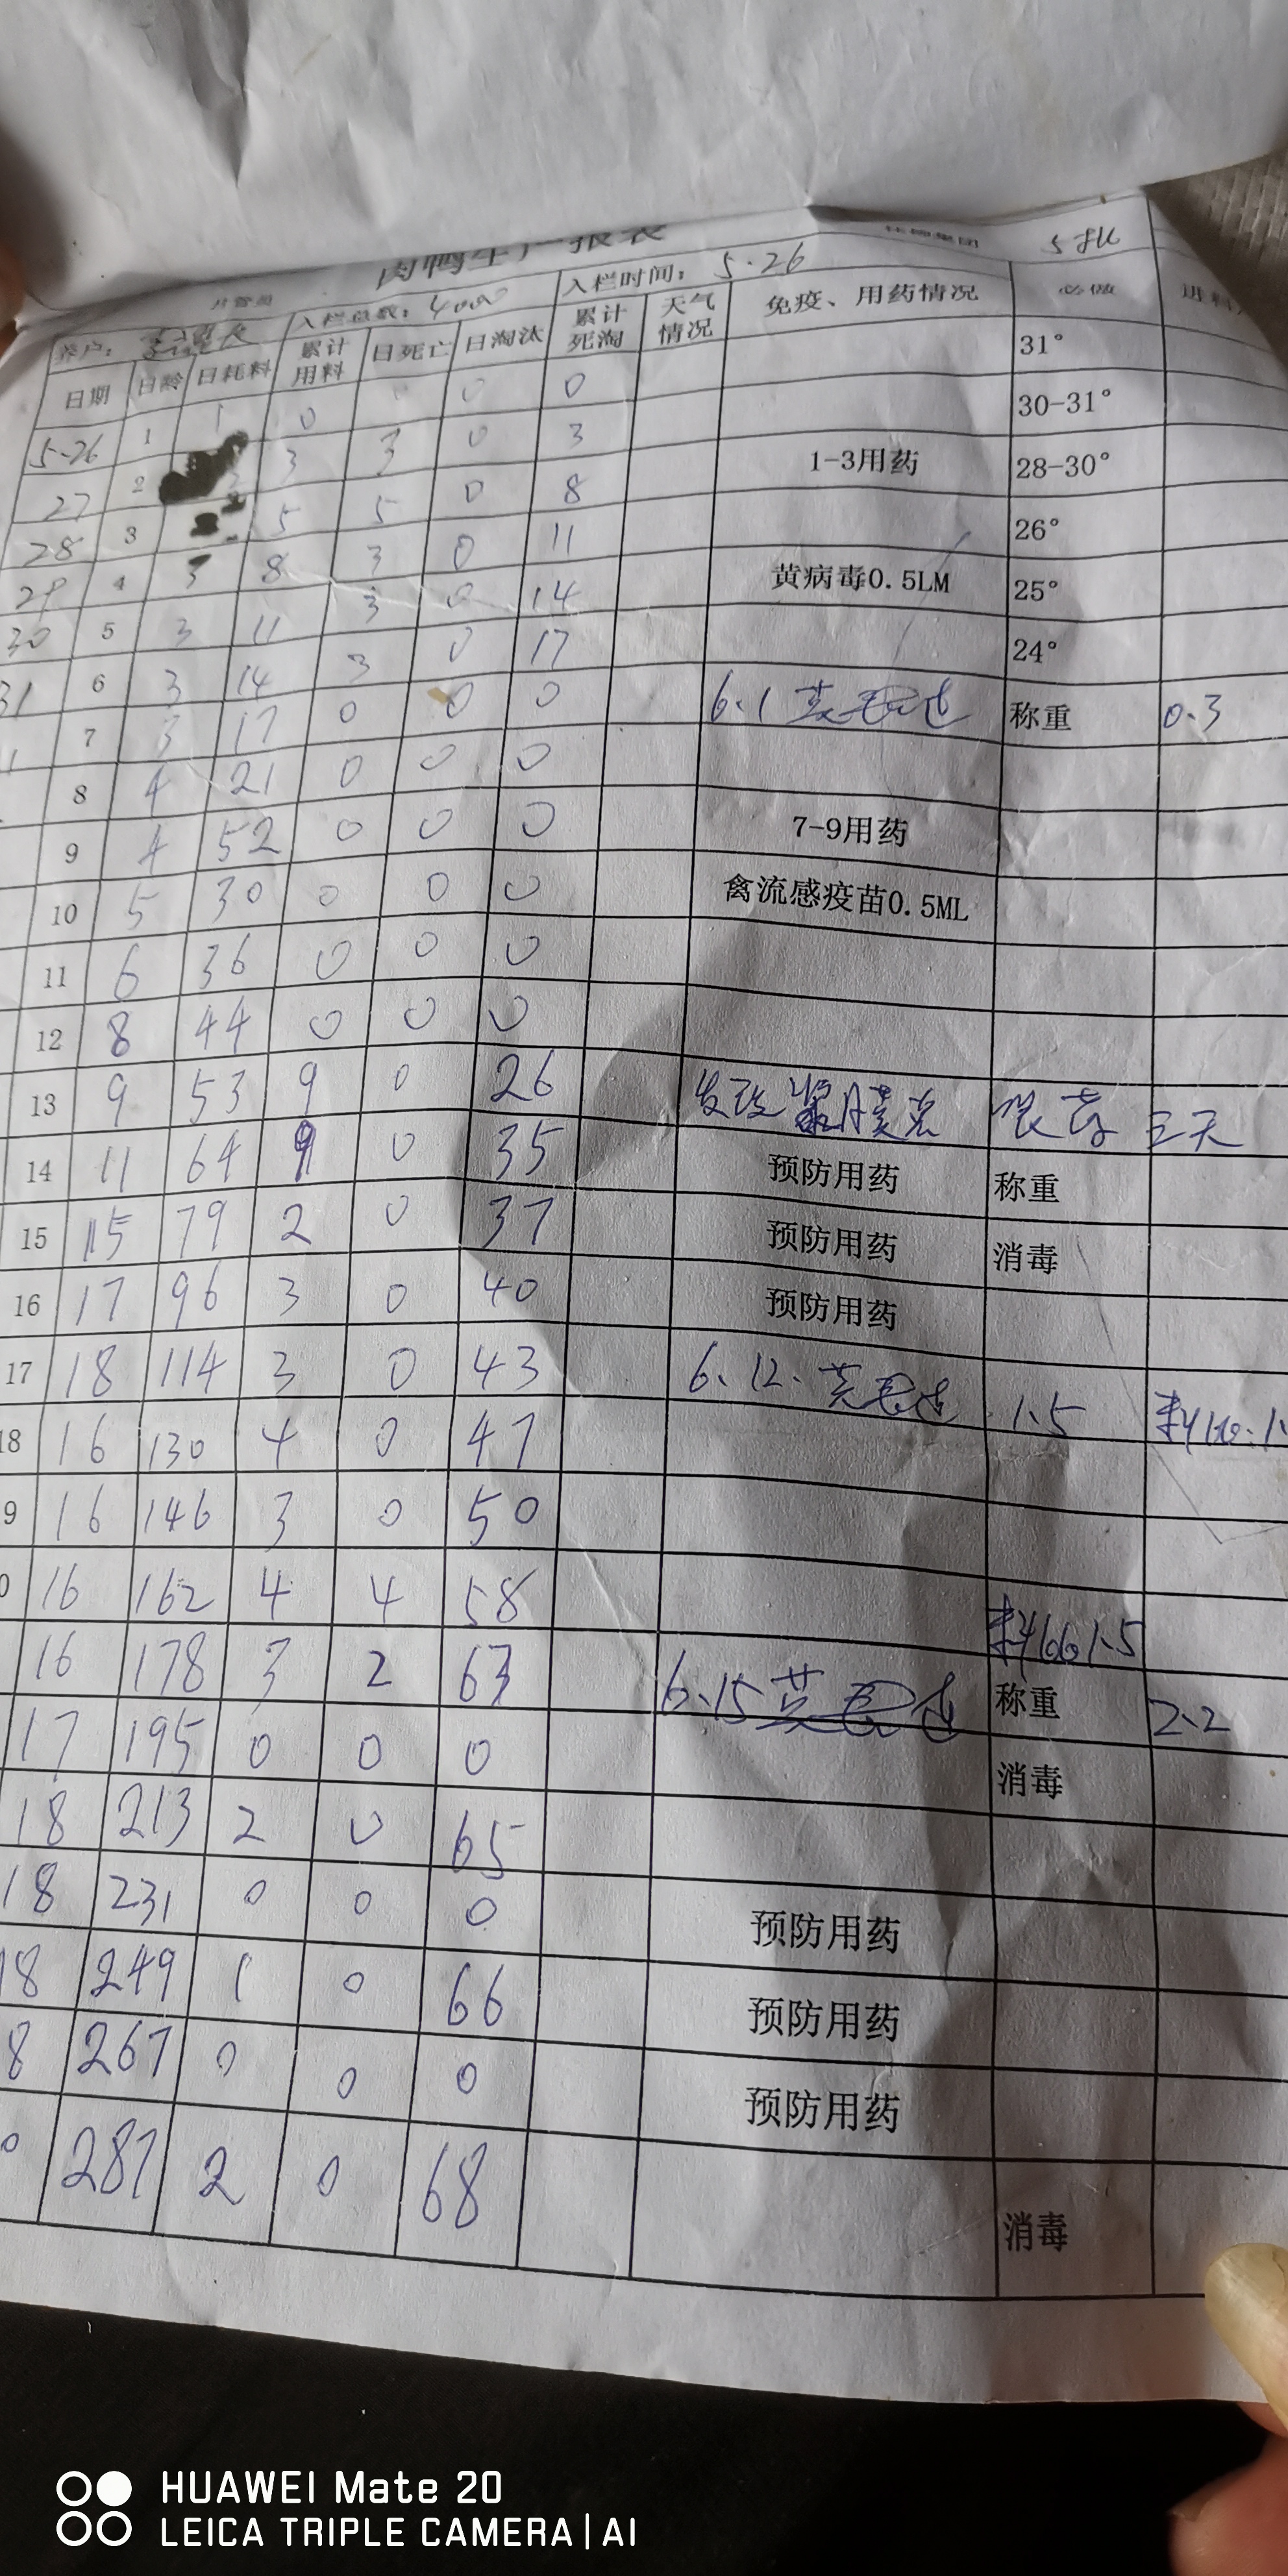 肉鸭生产报表
5批
养户： 入栏总数：4000 入栏时间：5.26
日期 日龄 日耗料 累计用料 日死亡 日淘汰 累计死淘 天气情况 免疫、用药情况 必做
5-26 1 1 0 0 0 31°
27 2 3 3 0 3 30-31°
28 3 5 5 0 8 1-3用药 28-30°
29 4 3 8 3 0 11 26°
30 5 3 11 3 0 14 黄病毒0.5LM 25°
31 6 3 14 3 0 17 24°
1 7 3 17 0 0 0 6.1 称重 0.3
8 4 21 0 0 0
9 4 52 0 0 0 7-9用药
10 5 30 0 0 0 禽流感疫苗0.5ML
11 6 36 0 0 0
12 8 44 0 0 0
13 9 53 9 0 26 三天
14 11 64 9 0 35 预防用药 称重
15 15 79 2 0 37 预防用药 消毒
16 17 96 3 0 40 预防用药
17 18 114 3 0 43 6.12. 1.5
18 16 130 4 0 47
9 16 146 3 0 50
0 16 162 4 4 58 料661.5
16 178 3 2 63 6.15 称重 2.2
17 195 0 0 0 消毒
18 213 2 0 65
18 231 0 0 0 预防用药
18 249 1 0 66 预防用药
8 267 0 0 0 预防用药
0 287 2 0 68 消毒
HUAWEI Mate 20
LEICA TRIPLE CAMERA | AI